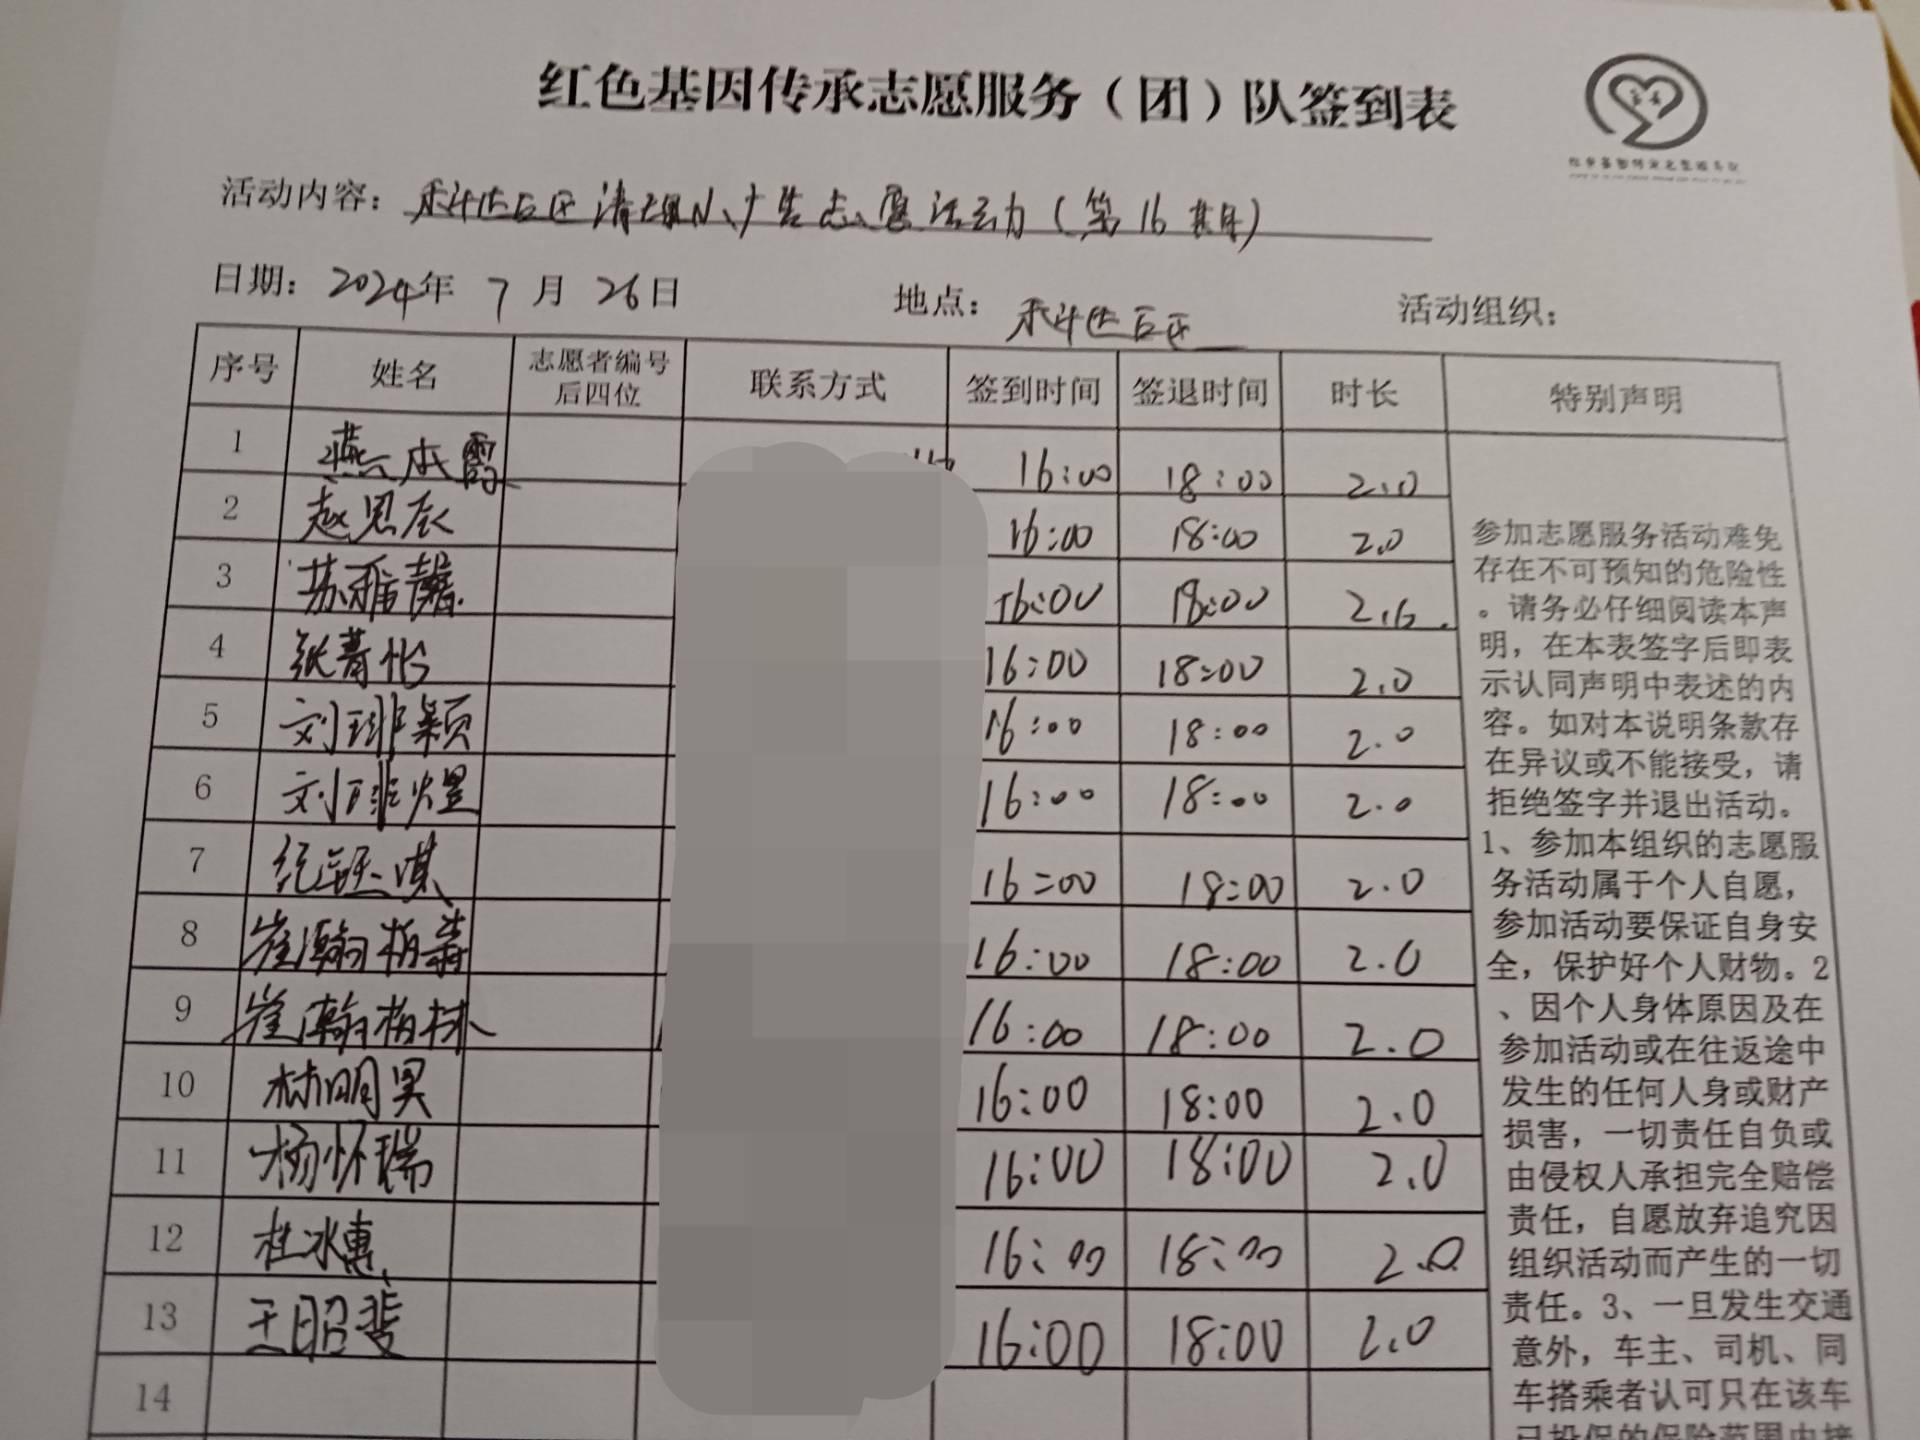 红色基因传承志愿服务（团）队签到表
活动内容：禾斗达后区清理小广告志愿活动（第16期）
日期：2024年7月26日 地点：禾斗达后区 活动组织：
序号 姓名 志愿者编号后四位 联系方式 签到时间 签退时间 时长 特别声明
1 燕本霞 16:00 18:00 2.0
2 赵思辰 16:00 18:00 2.0
3 苏雅馨 16:00 18:00 2.0
4 张菁怡 16:00 18:00 2.0
5 刘琲颖 16:00 18:00 2.0
6 刘琲煜 16:00 18:00 2.0
7 纪钰淇 16:00 18:00 2.0
8 崔瀚柏森 16:00 18:00 2.0
9 崔瀚柏林 16:00 18:00 2.0
10 林明昊 16:00 18:00 2.0
11 杨怀瑞 16:00 18:00 2.0
12 杜冰惠 16:00 18:00 2.0
13 王昭斐 16:00 18:00 2.0
14
参加志愿服务活动难免
存在不可预知的危险性
。请务必仔细阅读本声
明，在本表签字后即表
示认同声明中表述的内
容。如对本说明条款存
在异议或不能接受，请
拒绝签字并退出活动。
1、参加本组织的志愿服
务活动属于个人自愿，
参加活动要保证自身安
全，保护好个人财物。2
、因个人身体原因及在
参加活动或在往返途中
发生的任何人身或财产
损害，一切责任自负或
由侵权人承担完全赔偿
责任，自愿放弃追究因
组织活动而产生的一切
责任。3、一旦发生交通
意外，车主、司机、同
车搭乘者认可只在该车
已投保的保险范围内接